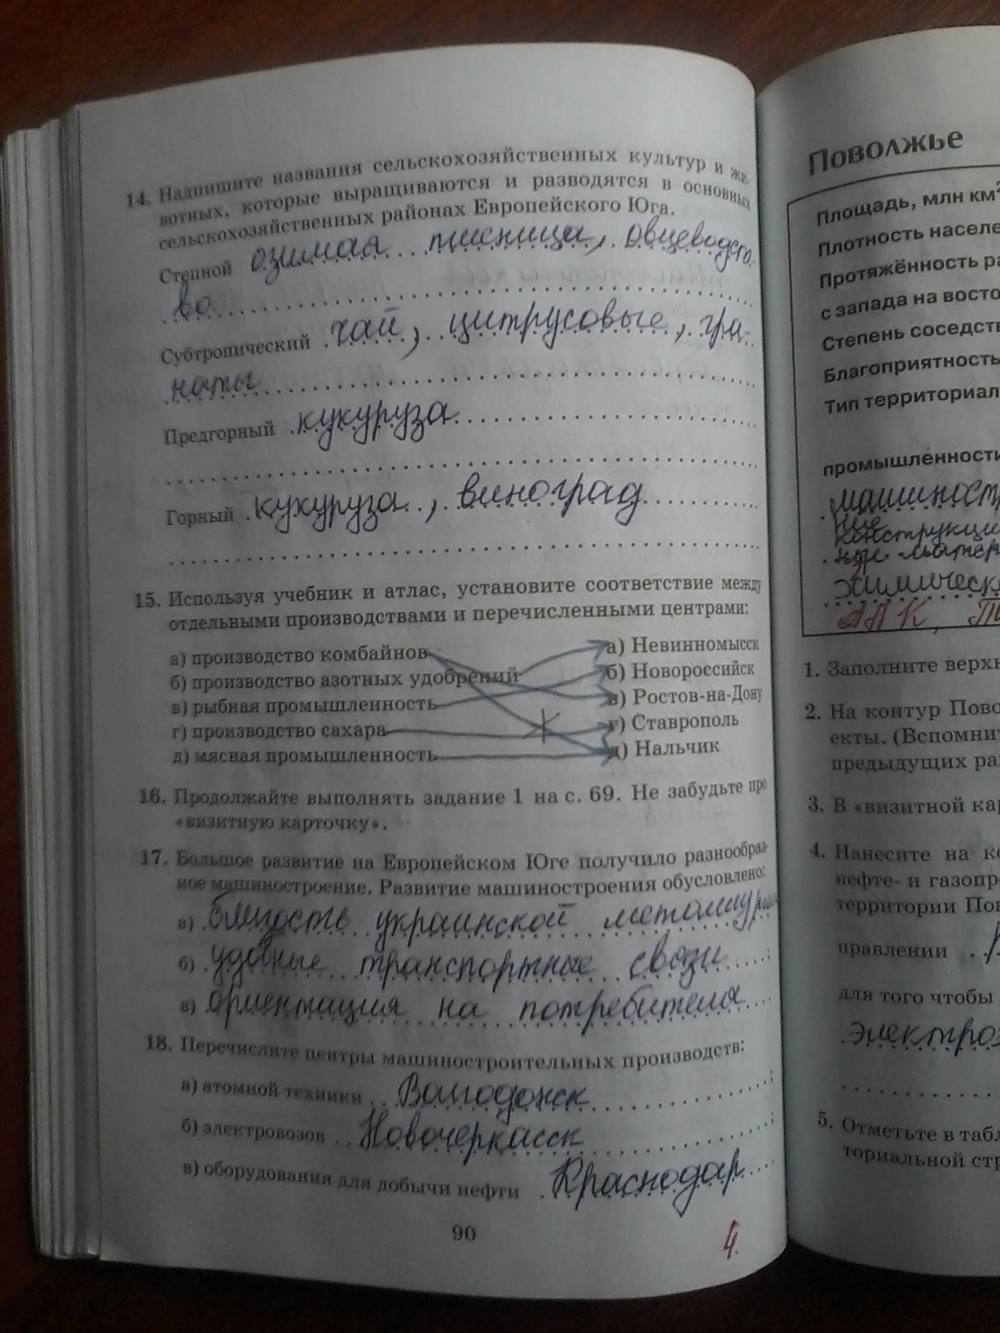 14. Надпишите названия сельскохозяйственных культур и жи-
вотных, которые выращиваются и разводятся в основных
сельскохозяйственных районах Европейского Юга.
Степной озимая пшеница, овцеводст-
во
Субтропический чай, цитрусовые, гра-
наты
Предгорный кукуруза
Горный кукуруза, виноград
15. Используя учебник и атлас, установите соответствие между
отдельными производствами и перечисленными центрами:
а) производство комбайнов а) Невинномысск
б) производство азотных удобрений б) Новороссийск
в) рыбная промышленность в) Ростов-на-Дону
г) производство сахара г) Ставрополь
д) мясная промышленность д) Нальчик
16. Продолжайте выполнять задание 1 на с. 69. Не забудьте про
«визитную карточку».
17. Большое развитие на Европейском Юге получило разнообраз-
ное машиностроение. Развитие машиностроения обусловлено:
а) украинской
б) удобные транспортные связи ;
в) ориентация на потребителя
18. Перечислите центры машиностроительных производств:
а) атомной техники Волгодонск ;
б) электровозов Новочеркасск ;
в) оборудования для добычи нефти Краснодар
90
4.
Поволжье
Площадь, млн км²
Плотность населе
Протяжённость ра
с запада на восто
Степень соседств
Благоприятность
Тип территориал
промышленности
машиност
ние
конструкци
ные матер
химическ
АПК, Т
1. Заполните верхн
2. На контур Пово
екты. (Вспомнит
предыдущих ра
3. В «визитной кар
4. Нанесите на ко
нефте- и газопро
территории Пов
правлении
для того чтобы
электроэ
5. Отметьте в табл
ториальной стр